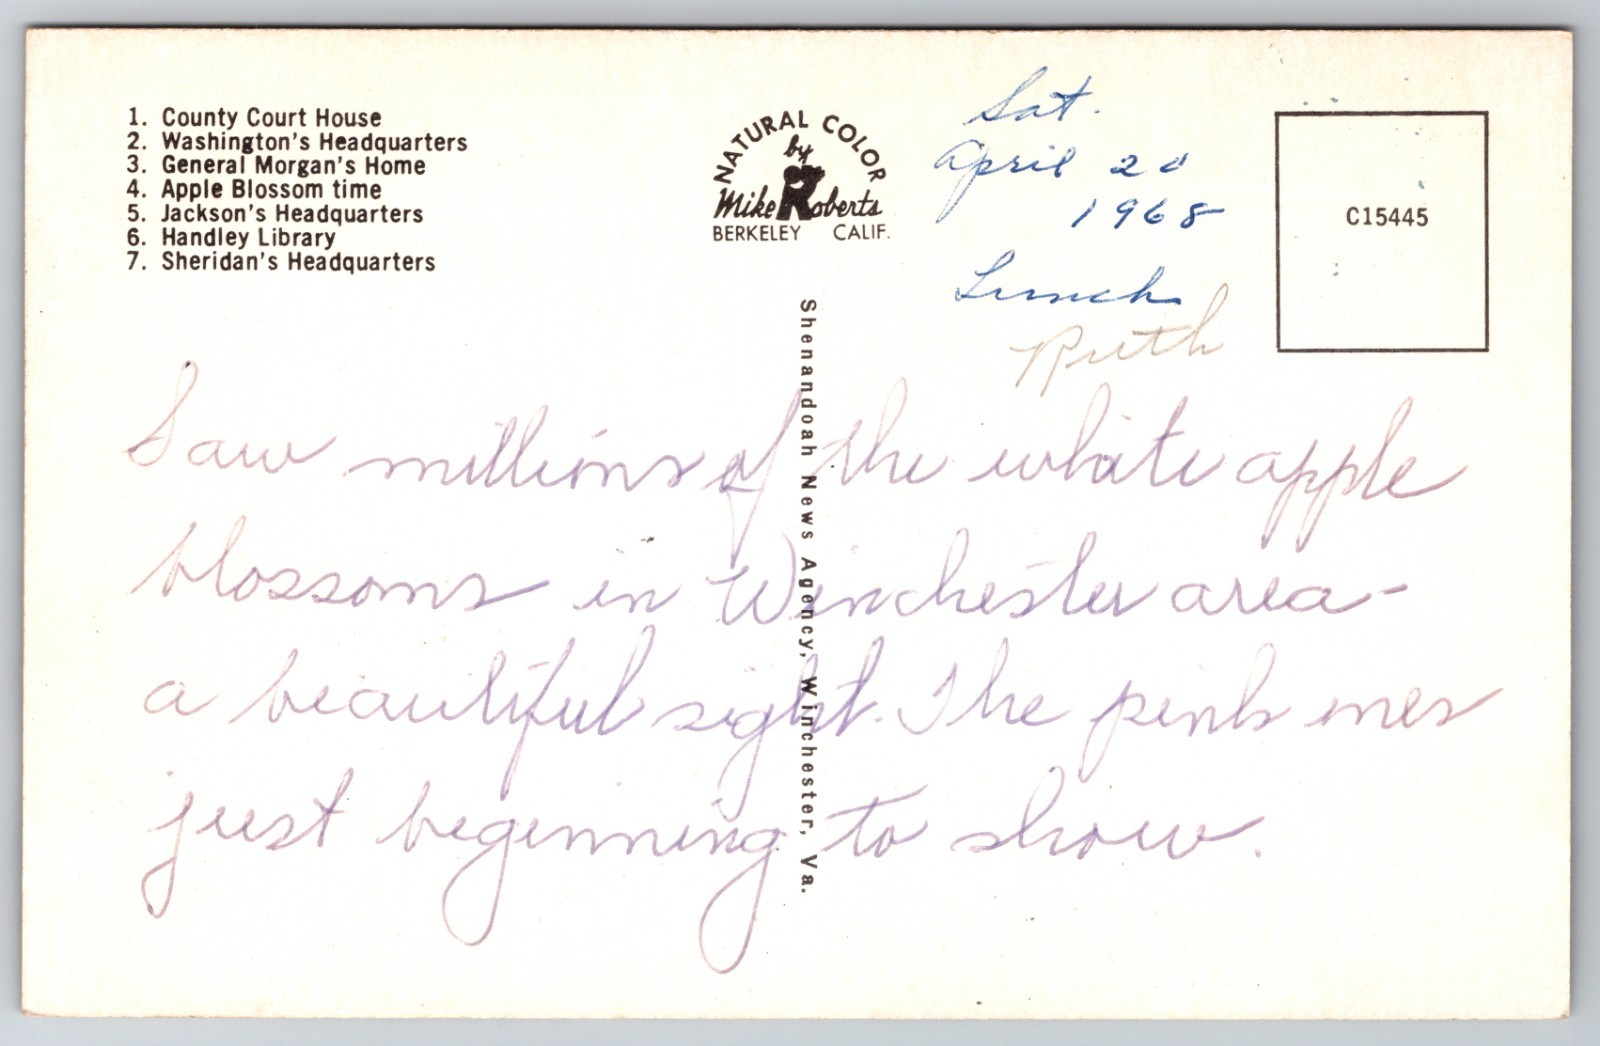 1. County Court House
2. Washington's Headquarters
3. General Morgan's Home
4. Apple Blossom time
5. Jackson's Headquarters
6. Handley Library
7. Sheridan's Headquarters
NATURAL COLOR
by
Mike Roberts
BERKELEY CALIF.
Sat.
April 20
1968
Lunch
Ruth
C15445
Shenandoah News Agency, Winchester, Va.
Saw millions of the white apple
blossoms in Winchester area-
a beautiful sight. The pink ones
just beginning to show.